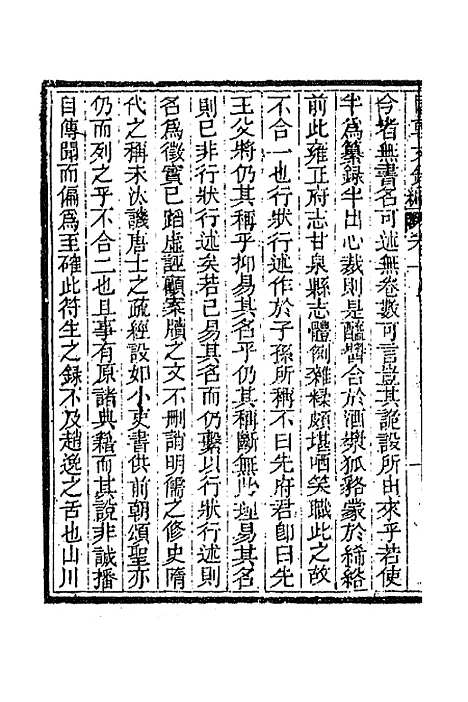 今者無書名可述無卷數可言豈其詭設所由來乎若使
半爲纂録半出心裁則是醯醬合於酒漿狐貉蒙於絺綌
前此雍正府志甘泉縣志體例雜糅頗堪哂笑職此之故
不合一也行狀行述作於子孫所稱不曰先府君卽曰先
王父將仍其稱乎抑易其名乎仍其稱斷無此理易其名
則已非行狀行述矣若已易其名而仍繫以行狀行述則
名爲徵實已蹈虛誣顧案牘之文不刪誚明儒之修史隋
代之稱未汰譏唐士之疏經設如小吏書供前朝頌聖亦
仍而列之乎不合二也且事有原諸典籍而其說非誠播
自傳聞而偏爲至確此符生之録不及趙逸之舌也山川